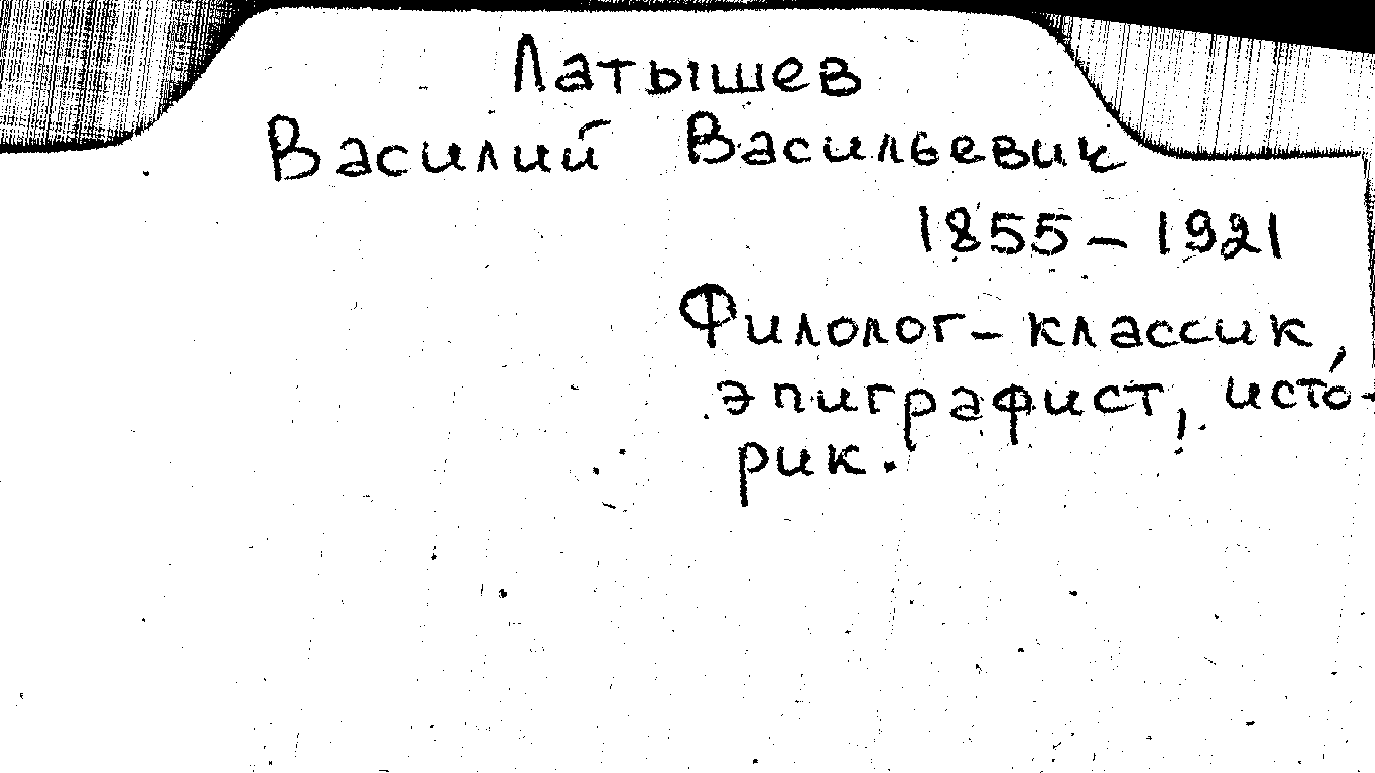 Латышев
Василий Васильевич
1855 - 1921
Филолог - классик,
эпиграфист, исто-
рик.